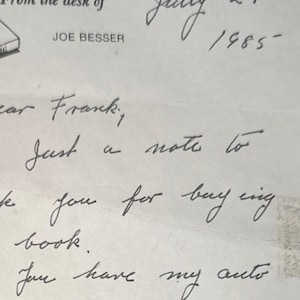 From the desk of
JOE BESSER
July 29
1985
ear Frank,
Just a note to
k you for buying
book.
You have my auto